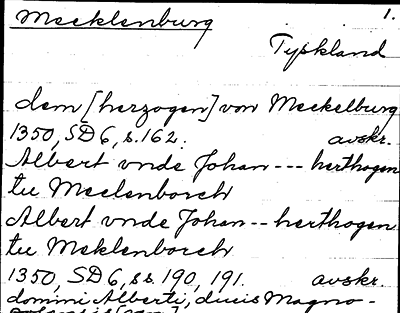 Mecklenburg 1.
Tyskland
dem [herzogen] von Meckelburg
1350, SD 6, s. 162. avskr.
Albert vnde Johan --- herthogen
tu Meclenborch
Albert vnde Johan -- herthogen
tu Meklenborch
1350, SD 6, s.s. 190, 191. avskr.
domini Alberti, ducis Magno-